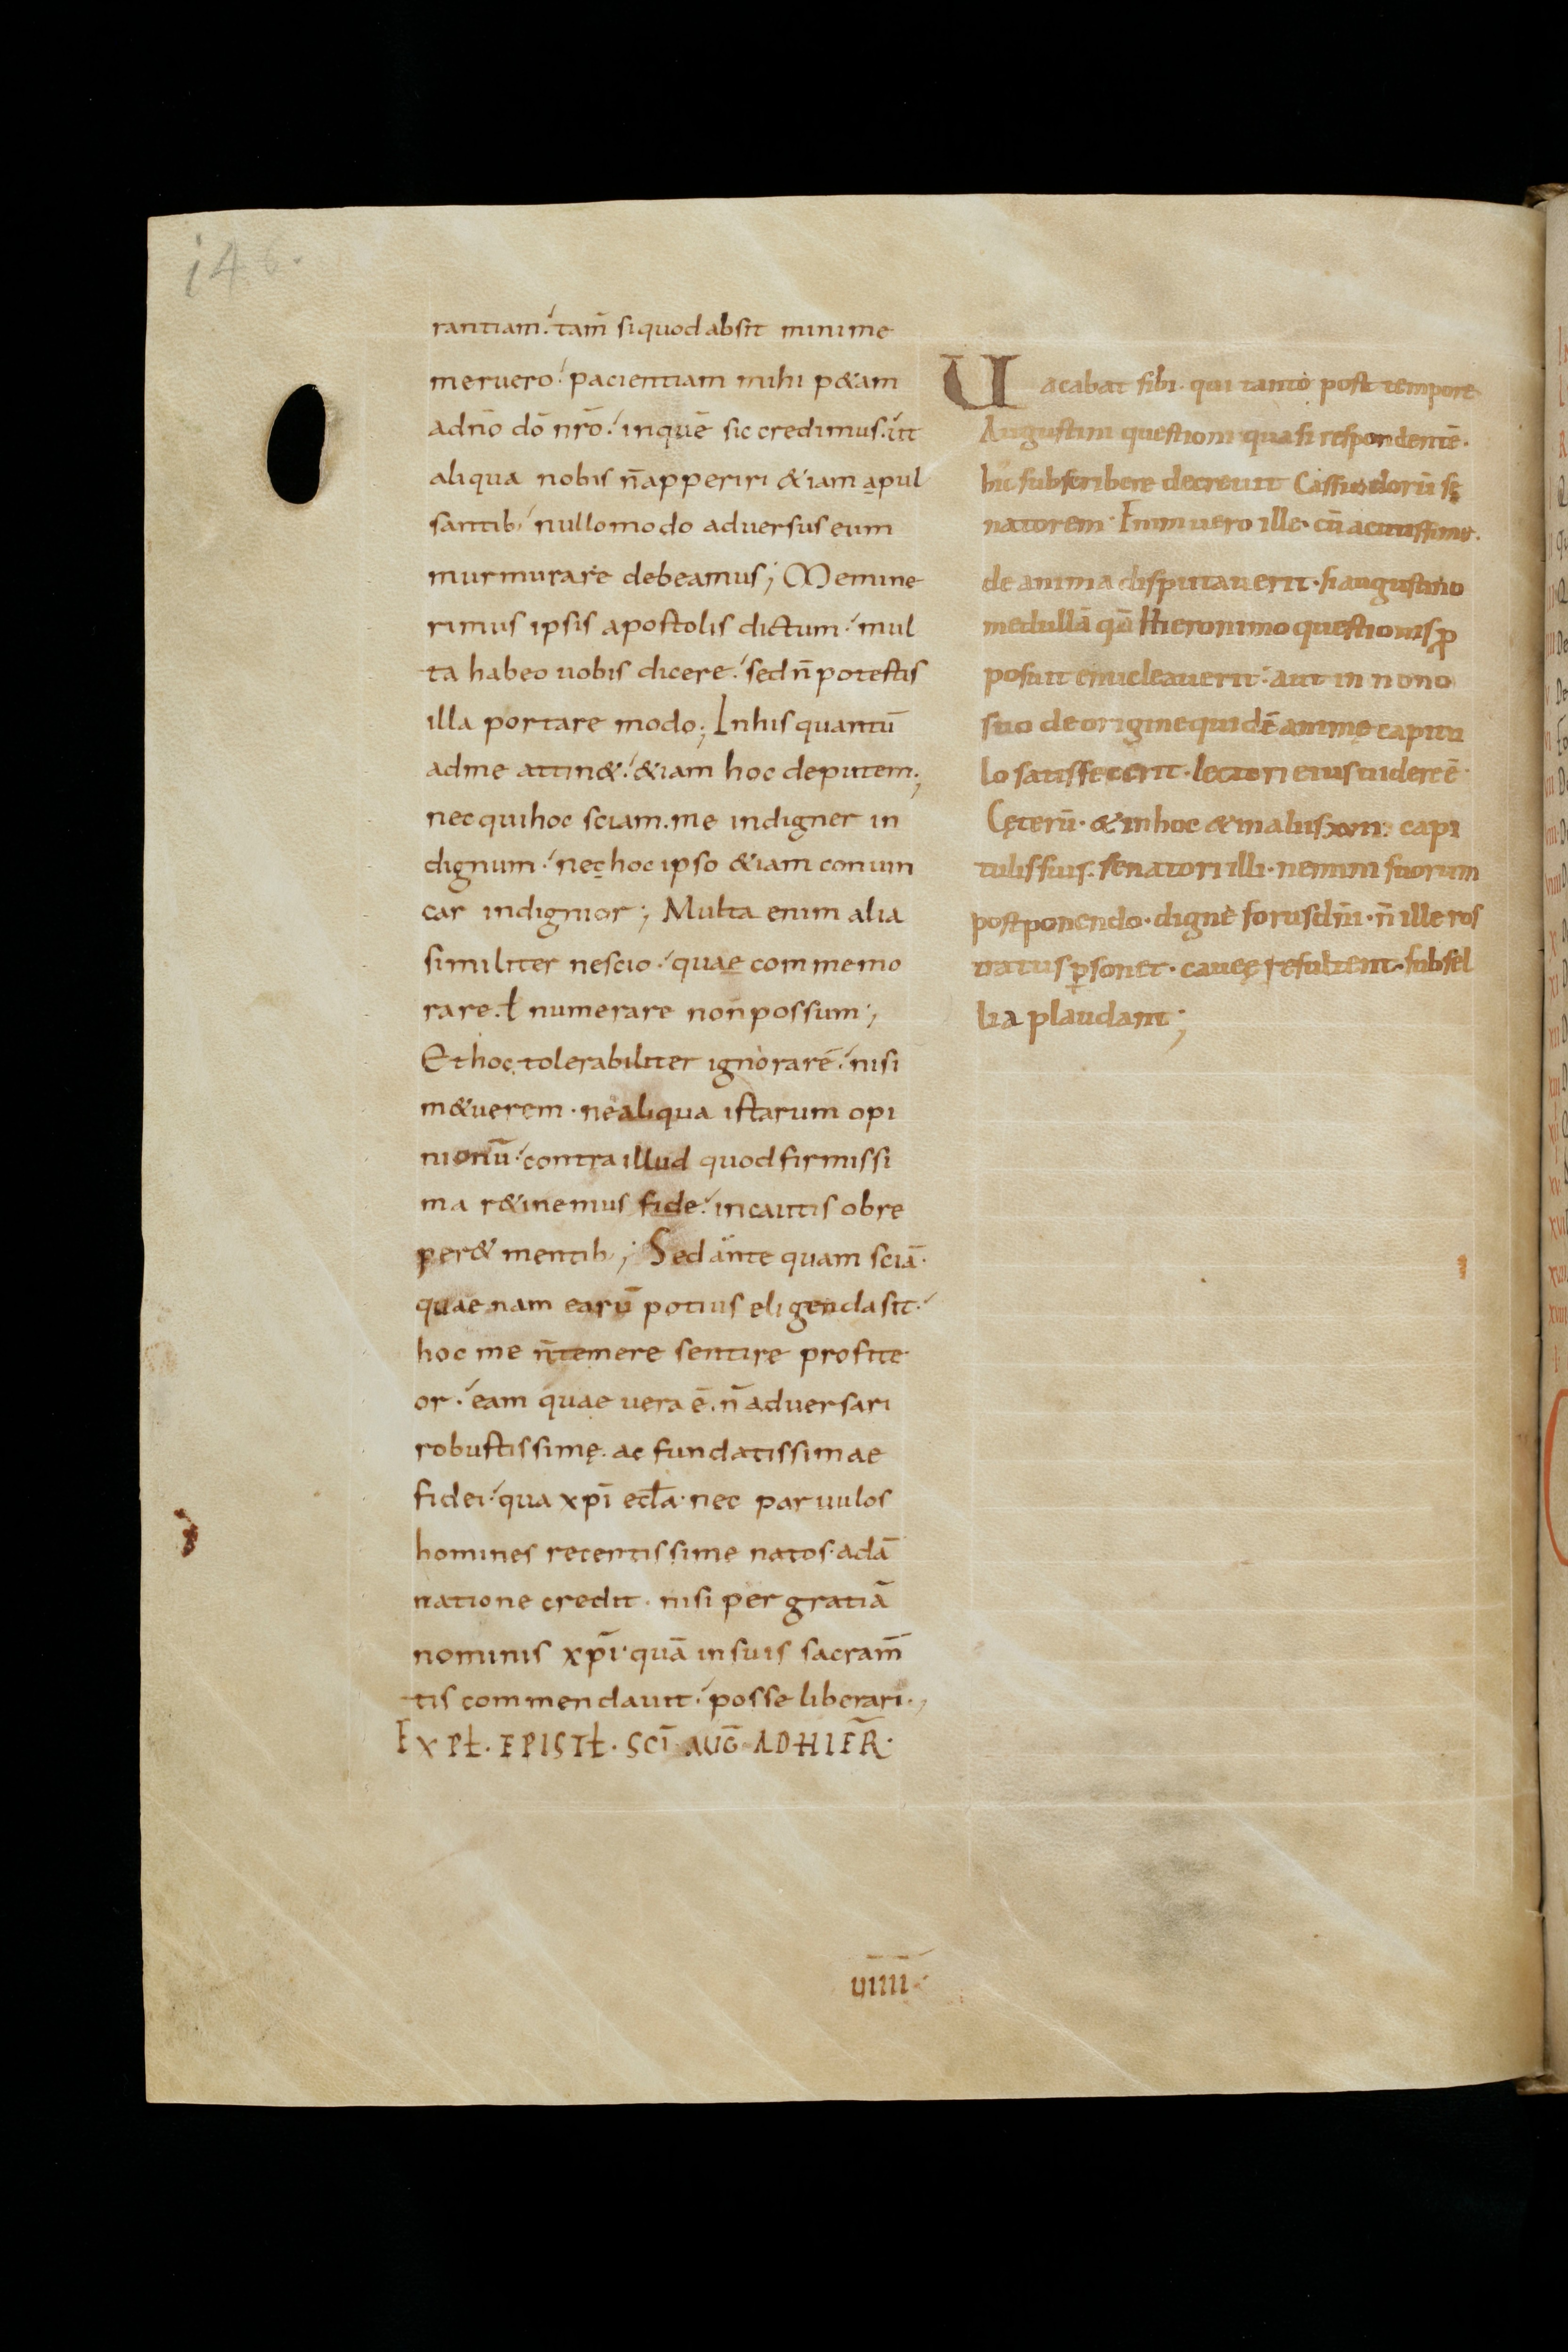 146.
rantiam. tam̄ siquodabsit minime
meruero. pacientiam mihi p&am
adn̄o dō nr̄o. inquē sic credimus. ut
aliqua nobis n̄apperiri &iam apul
santib; nullomodo adversus eum
murmurare debeamus; Memine
rimus ipsis apostolis dictum. mul
ta habeo vobis dicere. sed n̄ potestis
illa portare modo; Inhis quantū
adme attin&. &iam hoc deputem;
nec quihoc sciam. me indigner in
dignum. nec hoc ipso &iam convin
car indignior; Multa enim alia
similiter nescio. quae commemo
rare. ł numerare non possum;
Et hoc tolerabiliter ignorarē. nisi
m&uerem. ne aliqua istarum opi
nionū. contra illud quod firmissi
ma r&inemus fide. incautis obre
per& mentib; Sed ante quam sciā.
quae nam earū potius eligenda sit.
hoc me n̄temere sentire profite
or. eam quae vera ē. n̄ adversari
robustissimę. ac fundatissimae
fidei. qua xp̄i ecła. nec parvulos
homines recentissime natos. adā
natione credit. nisi per gratiā
nominis xp̄i. quā insuis sacram̄
tis commendavit. posse liberari.;
EXPŁ. EPISTŁ. SCĪ. AUḠ ADHIER̄.
Uacabat sibi. qui tanto post tempore
Augustini questioni quasi respondentē.
hic subscribere decrevit Cassiodorū sę
natorem. Enimvero ille. cū acutissime.
de anima disputaverit. si augustino
medullā quā Hieronimo questionis ꝓ
posuit enucleaverit. aut in nono
suo de origine quidē animę capitu
lo satisfecerit. lectori eius videre ē.
Cęterū. & inhoc & in aliis xvii. capi
tulis suis. senatori illi. nemini suorum
postponendo. digne forusdm̄. n̄ ille ros
tratus ꝑsonet. caveę resultent. subsel
lia plaudant;
uiiii